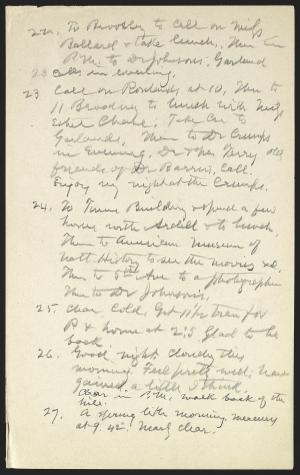 22. To Brooklyn to call on Miss
Ballard & take lunch. Then in
P.M. to Dr Johnsons. Garland
23 calls in evening.
23 Call on Rowlands at 10, Then to
11 Broadway to lunch with Miss
Esther Chase. Take Car to
Garlands, Then to Dr Crumps
in Evening. Dr & Mrs Terry old
friends of Dr Barrus, Call.
Enjoy my night at the Crumps.
24. To Times Building & spend a few
hours with & to lunch.
Then to American Museum of
Natl History to see the movies
Then to 5th Ave to a photographer
Then to Dr Johnsons.
25. Clear, Cold, Get 11½ train for
P & home at 2:5 Glad to be
back.
26. Good night, cloudy this
morning. Feel pretty well; have
gained a little I think.
Clear in P.M. walk back of the
hill.
27. A spring like morning, mercury
at 9. 42°. Nearly clear.